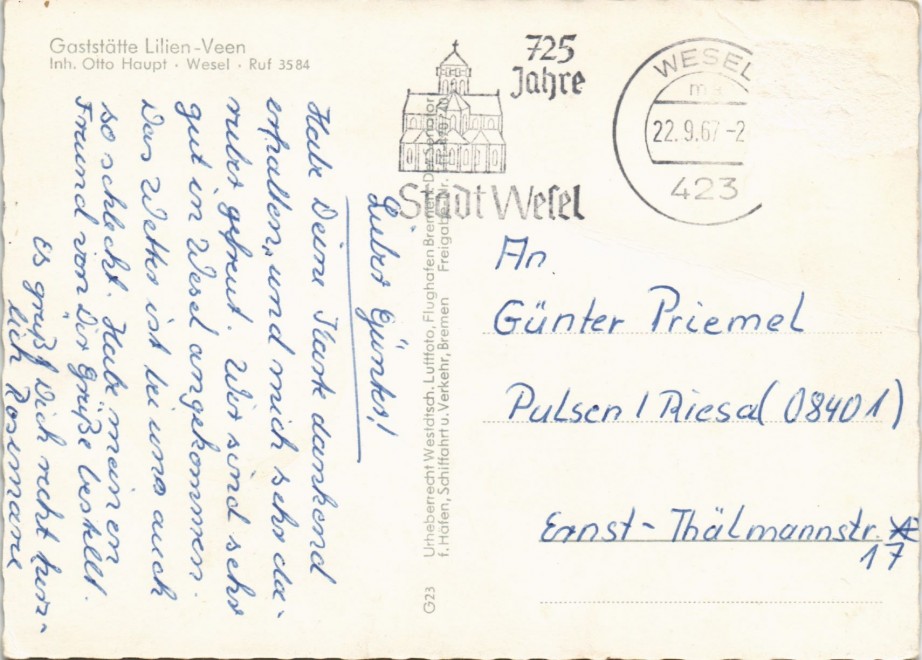 Gaststätte Lilien-Veen
Inh. Otto Haupt · Wesel · Ruf 3584
725
Jahre
Stadt Wesel
WESEL
22.9.67-2
423
Lieber Günter!
Habe Deine Karte dankend
erhalten, und mich sehr da-
rüber gefreut. Wir sind sehr
gut in Wesel angekommen.
Das Wetter ist bei uns auch
so schlecht. Habe meinen
Freund von Dir Grüße bestellt.
Es grüßt Dich recht herz-
lich Rosemarie
Urheberrecht Westdtsch. Luftfoto, Flughafen Bremen Der Senator
f. Häfen, Schiffahrt u. Verkehr, Bremen Freigabe Nr.
G23
An
Günter Priemel
Pulsen / Riesa (08401)
Ernst-Thälmannstr.
17